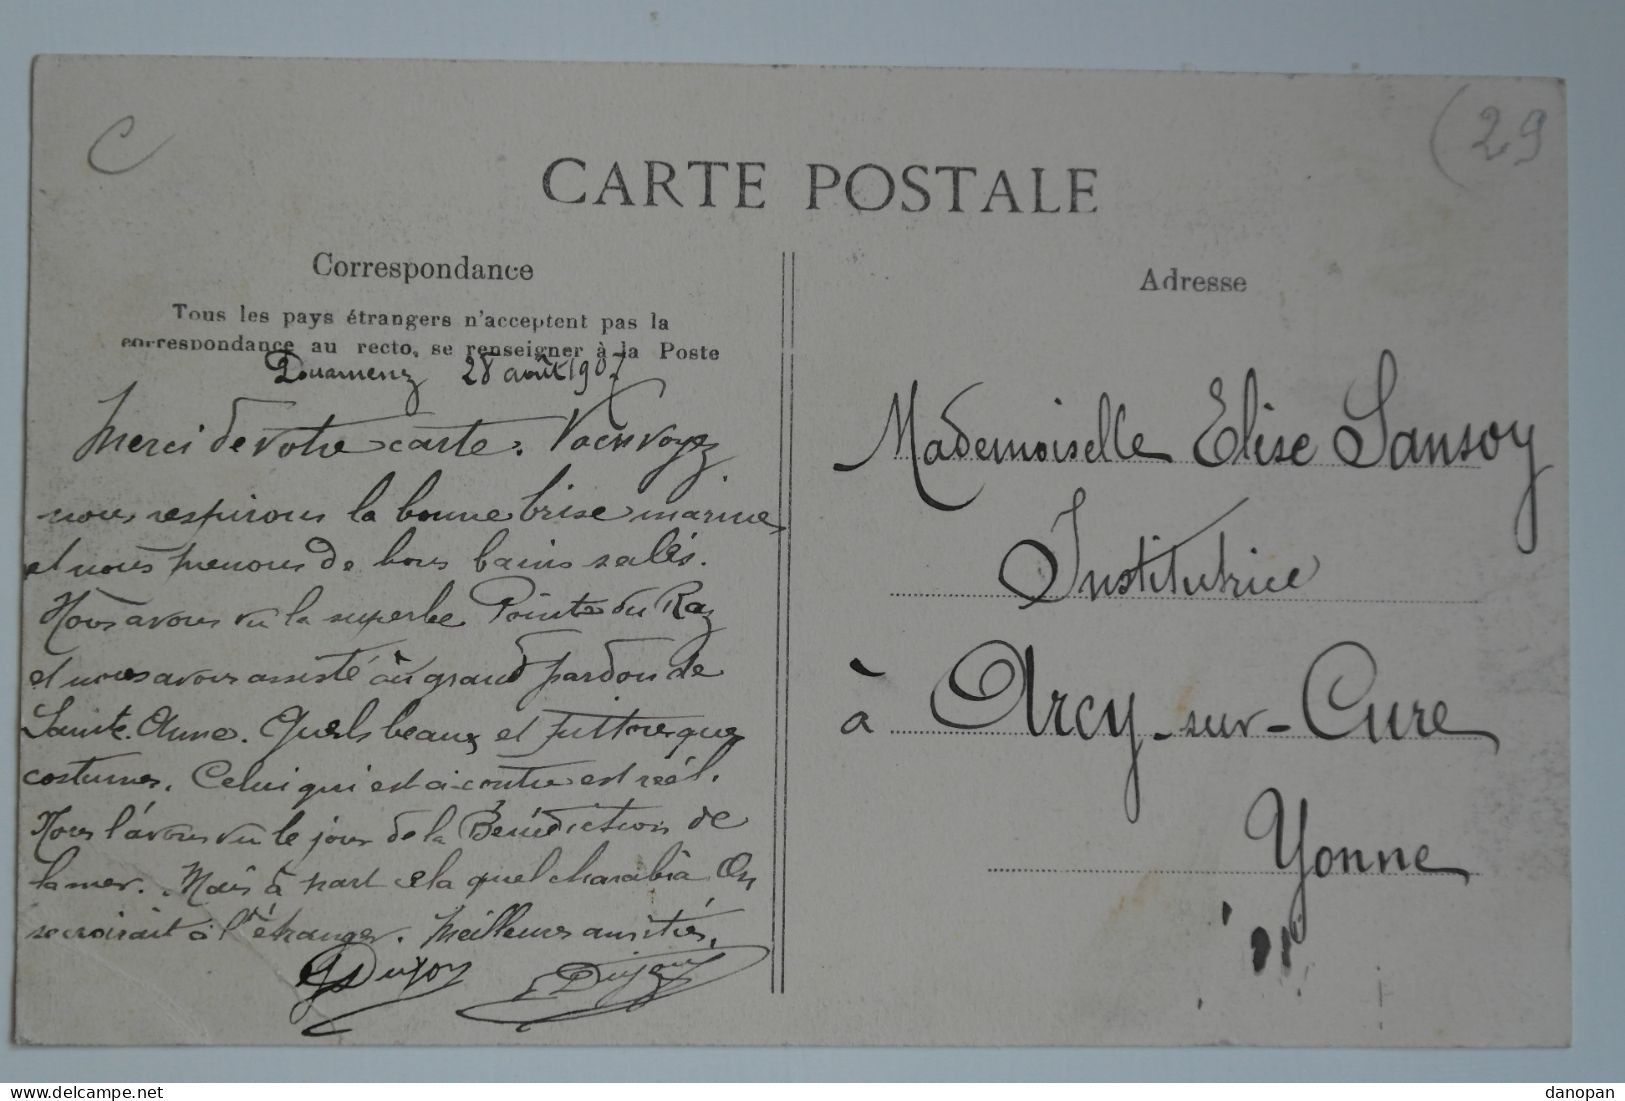 C
(29
CARTE POSTALE
Correspondance
Tous les pays étrangers n'acceptent pas la
correspondance au recto, se renseigner à la Poste
Douarnenz 28 août 1907
Merci de votre carte. Vous voyez
nous respirons la bonne brise marine
et nous prenons de bons bains salés.
Nous avons vu la superbe Pointe du Raz
et nous avons assisté au grand pardon de
Sainte Anne. Quels beaux et pittoresques
costumes. Celui qui est ci-contre est réel.
Nous l'avons vu le jour de la Bénédiction de
la mer. Mais à part cela quel charabia On
se croirait à l'étranger. Meilleures amitiés.
Adresse
Mademoiselle Elise Sansoy
Institutrice
à Arcy-sur-Cure
Yonne
www.delcampe.net
danopan